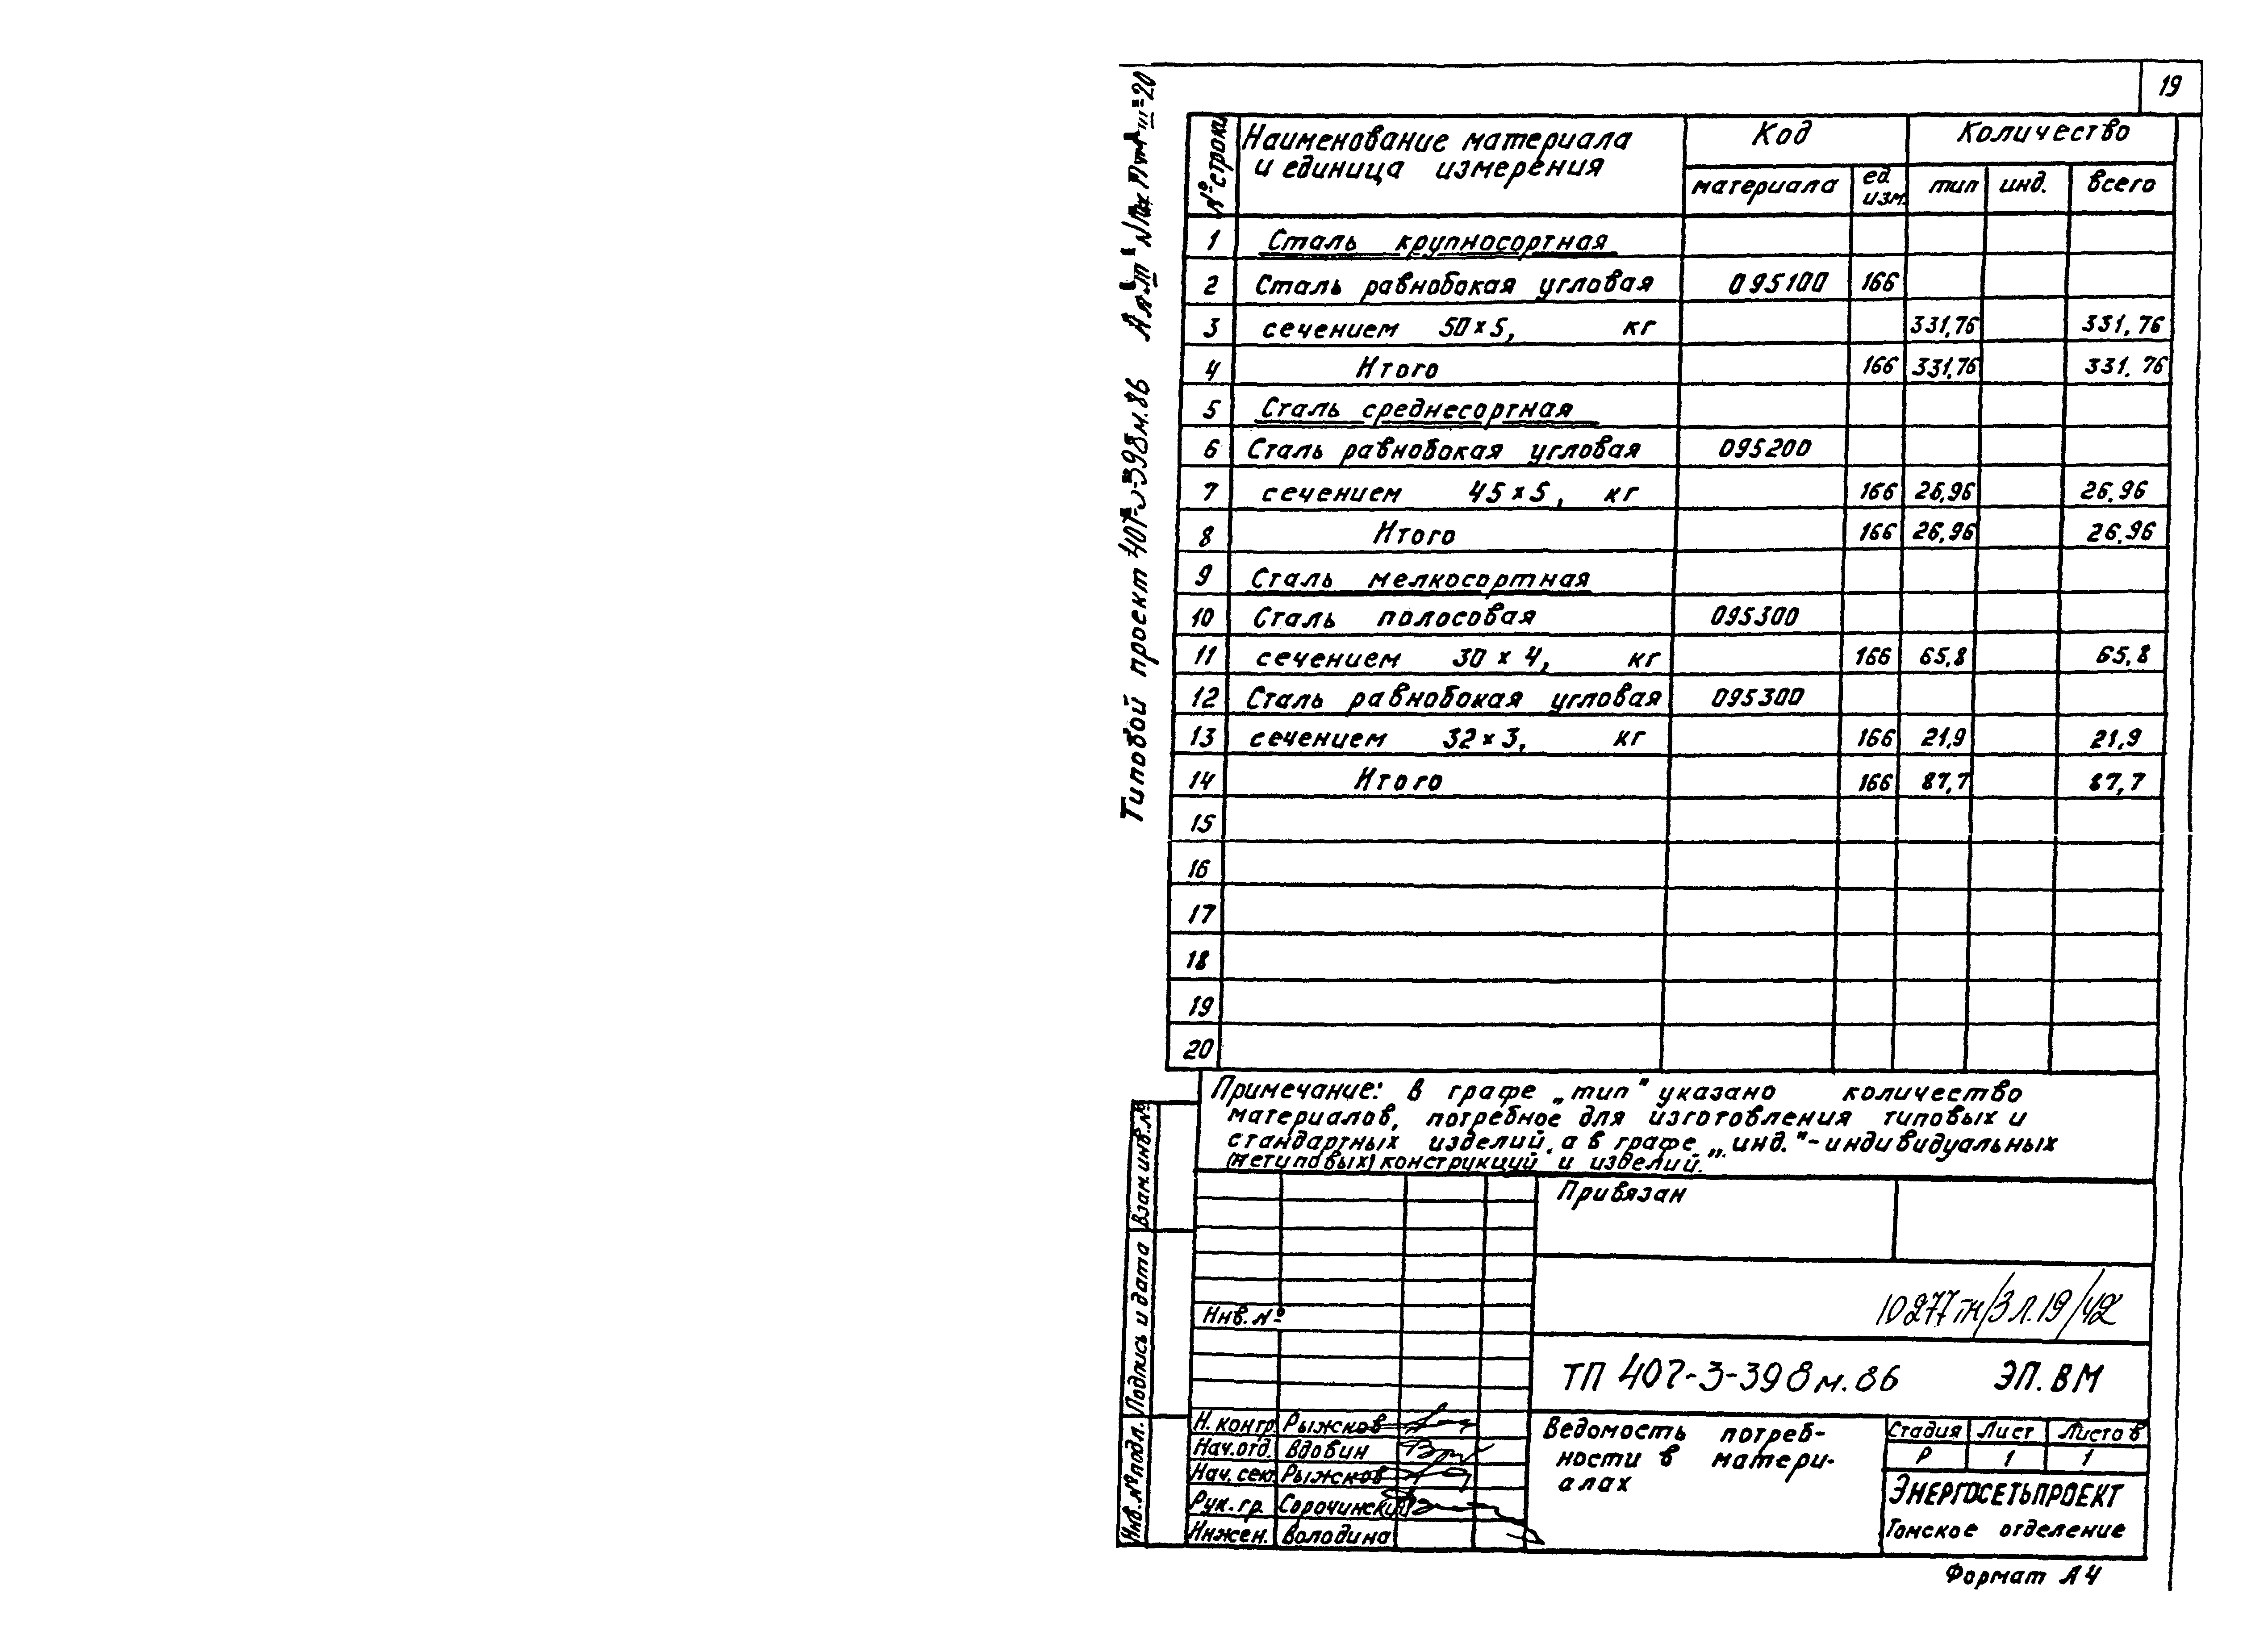 19
Типовой проект 407-3-398м.86
№ строки
Наименование материала и единица измерения
Код
Количество
материала
ед. изм.
тип
инд.
всего
1 Сталь крупносортная
2 Сталь равнобокая угловая 095100 166
3 сечением 50×5, кг 331,76 331,76
4 Итого 166 331,76 331.76
5 Сталь среднесортная
6 Сталь равнобокая угловая 095200
7 сечением 45×5, кг 166 26,96 26,96
8 Итого 166 26,96 26,96
9 Сталь мелкосортная
10 Сталь полосовая 095300
11 сечением 30×4, кг 166 65,8 65,8
12 Сталь равнобокая угловая 095300
13 сечением 32×3, кг 166 21,9 21,9
14 Итого 166 87,7 87,7
15
16
17
18
19
20
Примечание: в графе „тип" указано количество
материалов, потребное для изготовления типовых и
стандартных изделий, а в графе „инд."-индивидуальных
(нетиповых) конструкций и изделий.
Взам. инв. №
Подпись и дата
Инв. № подл.
Привязан
Инв. №
10277тм/3 л.19/42
ТП 407-3-398м.86 ЭП.ВМ
Н. контр. Рыжков
Нач. отд. Вдовин
Нач. сек. Рыжков
Рук. гр. Сорочинский
Инжен. Володина
Ведомость потреб-
ности в матери-
алах
Стадия Лист Листов
Р 1 1
ЭНЕРГОСЕТЬПРОЕКТ
Томское отделение
Формат А4